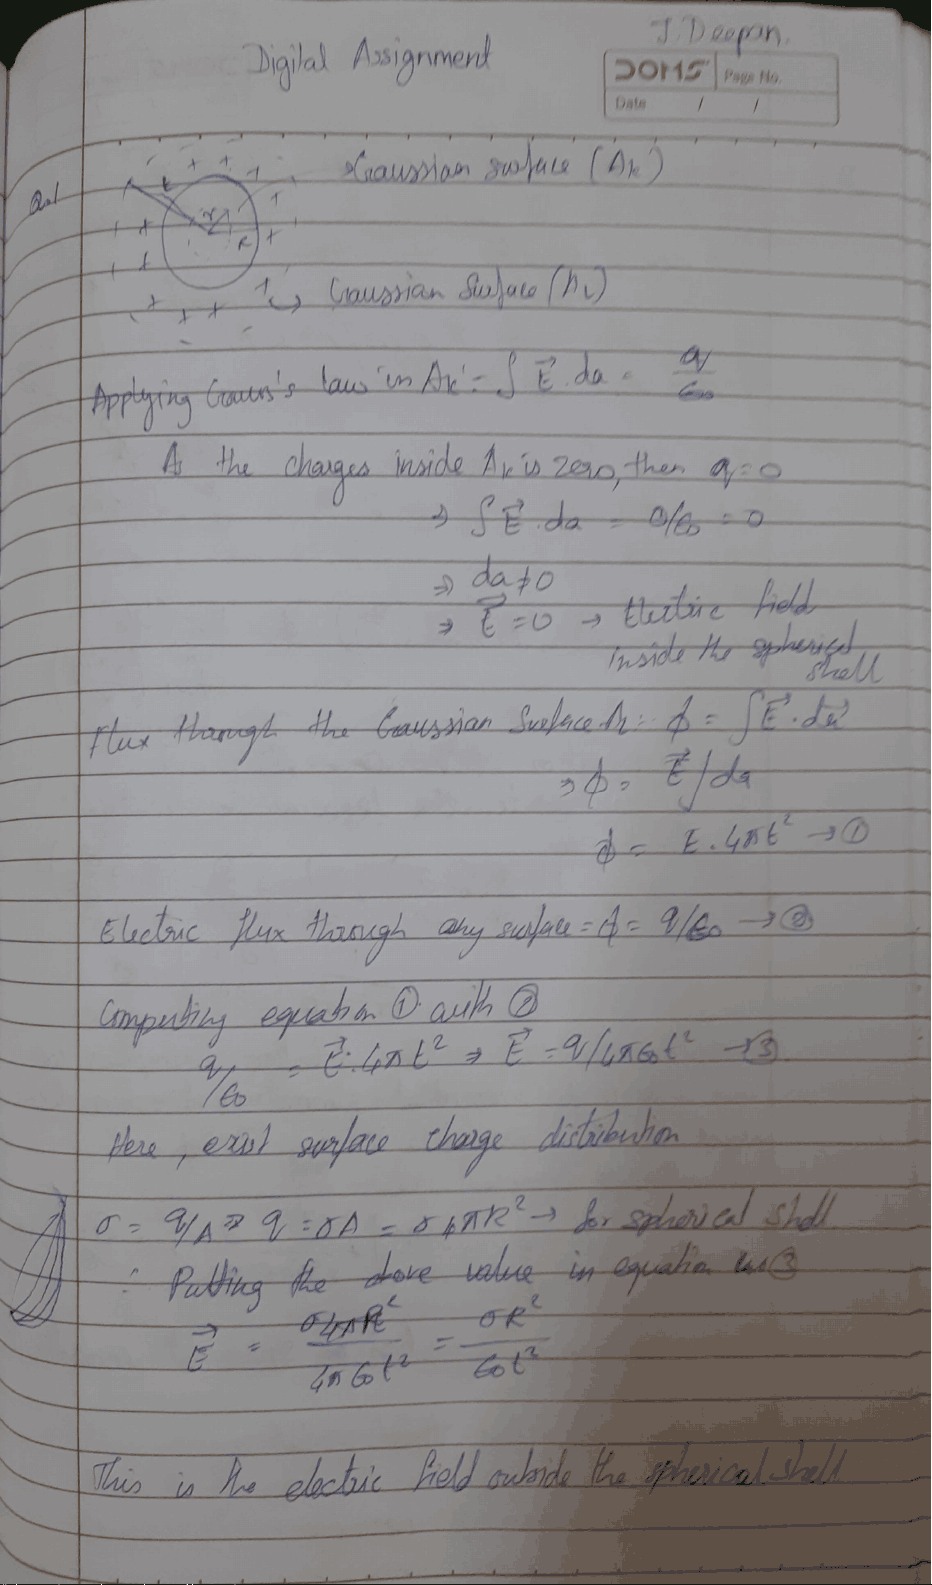 J. Deepan.
Digital Assignment
DOMS Page No.
Date / /
Q.1
Gaussian surface (Ak)
t
r
R
Gaussian Surface (Ar)
Applying Gauss's law in Ak = ∫ E⃗ . da = q/ϵ0
As the charges inside Ak is zero, then q = 0
⇒ ∫ E⃗ . da = 0/ϵ0 = 0
⇒ da ≠ 0
⇒ E⃗ = 0 → Electric field
inside the spherical
shell
Flux through the Gaussian Surface Ar = ϕ = ∫ E⃗ . da⃗
⇒ ϕ = E⃗ ∫ da
ϕ = E . 4πt² → ①
Electric flux through any surface = ϕ = q/ϵ0 → ②
Computing equation ① with ②
q/ϵ0 = E⃗ . 4πt² ⇒ E⃗ = q/4πϵ0t² → ③
Here, exist surface charge distribution
σ = q/A ⇒ q = σA = σ4πR² → for spherical shell
∴ Putting the above value in equation ③
E⃗ = σ4πR²/4πϵ0t² = σR²/ϵ0t²
This is the electric field outside the spherical shell